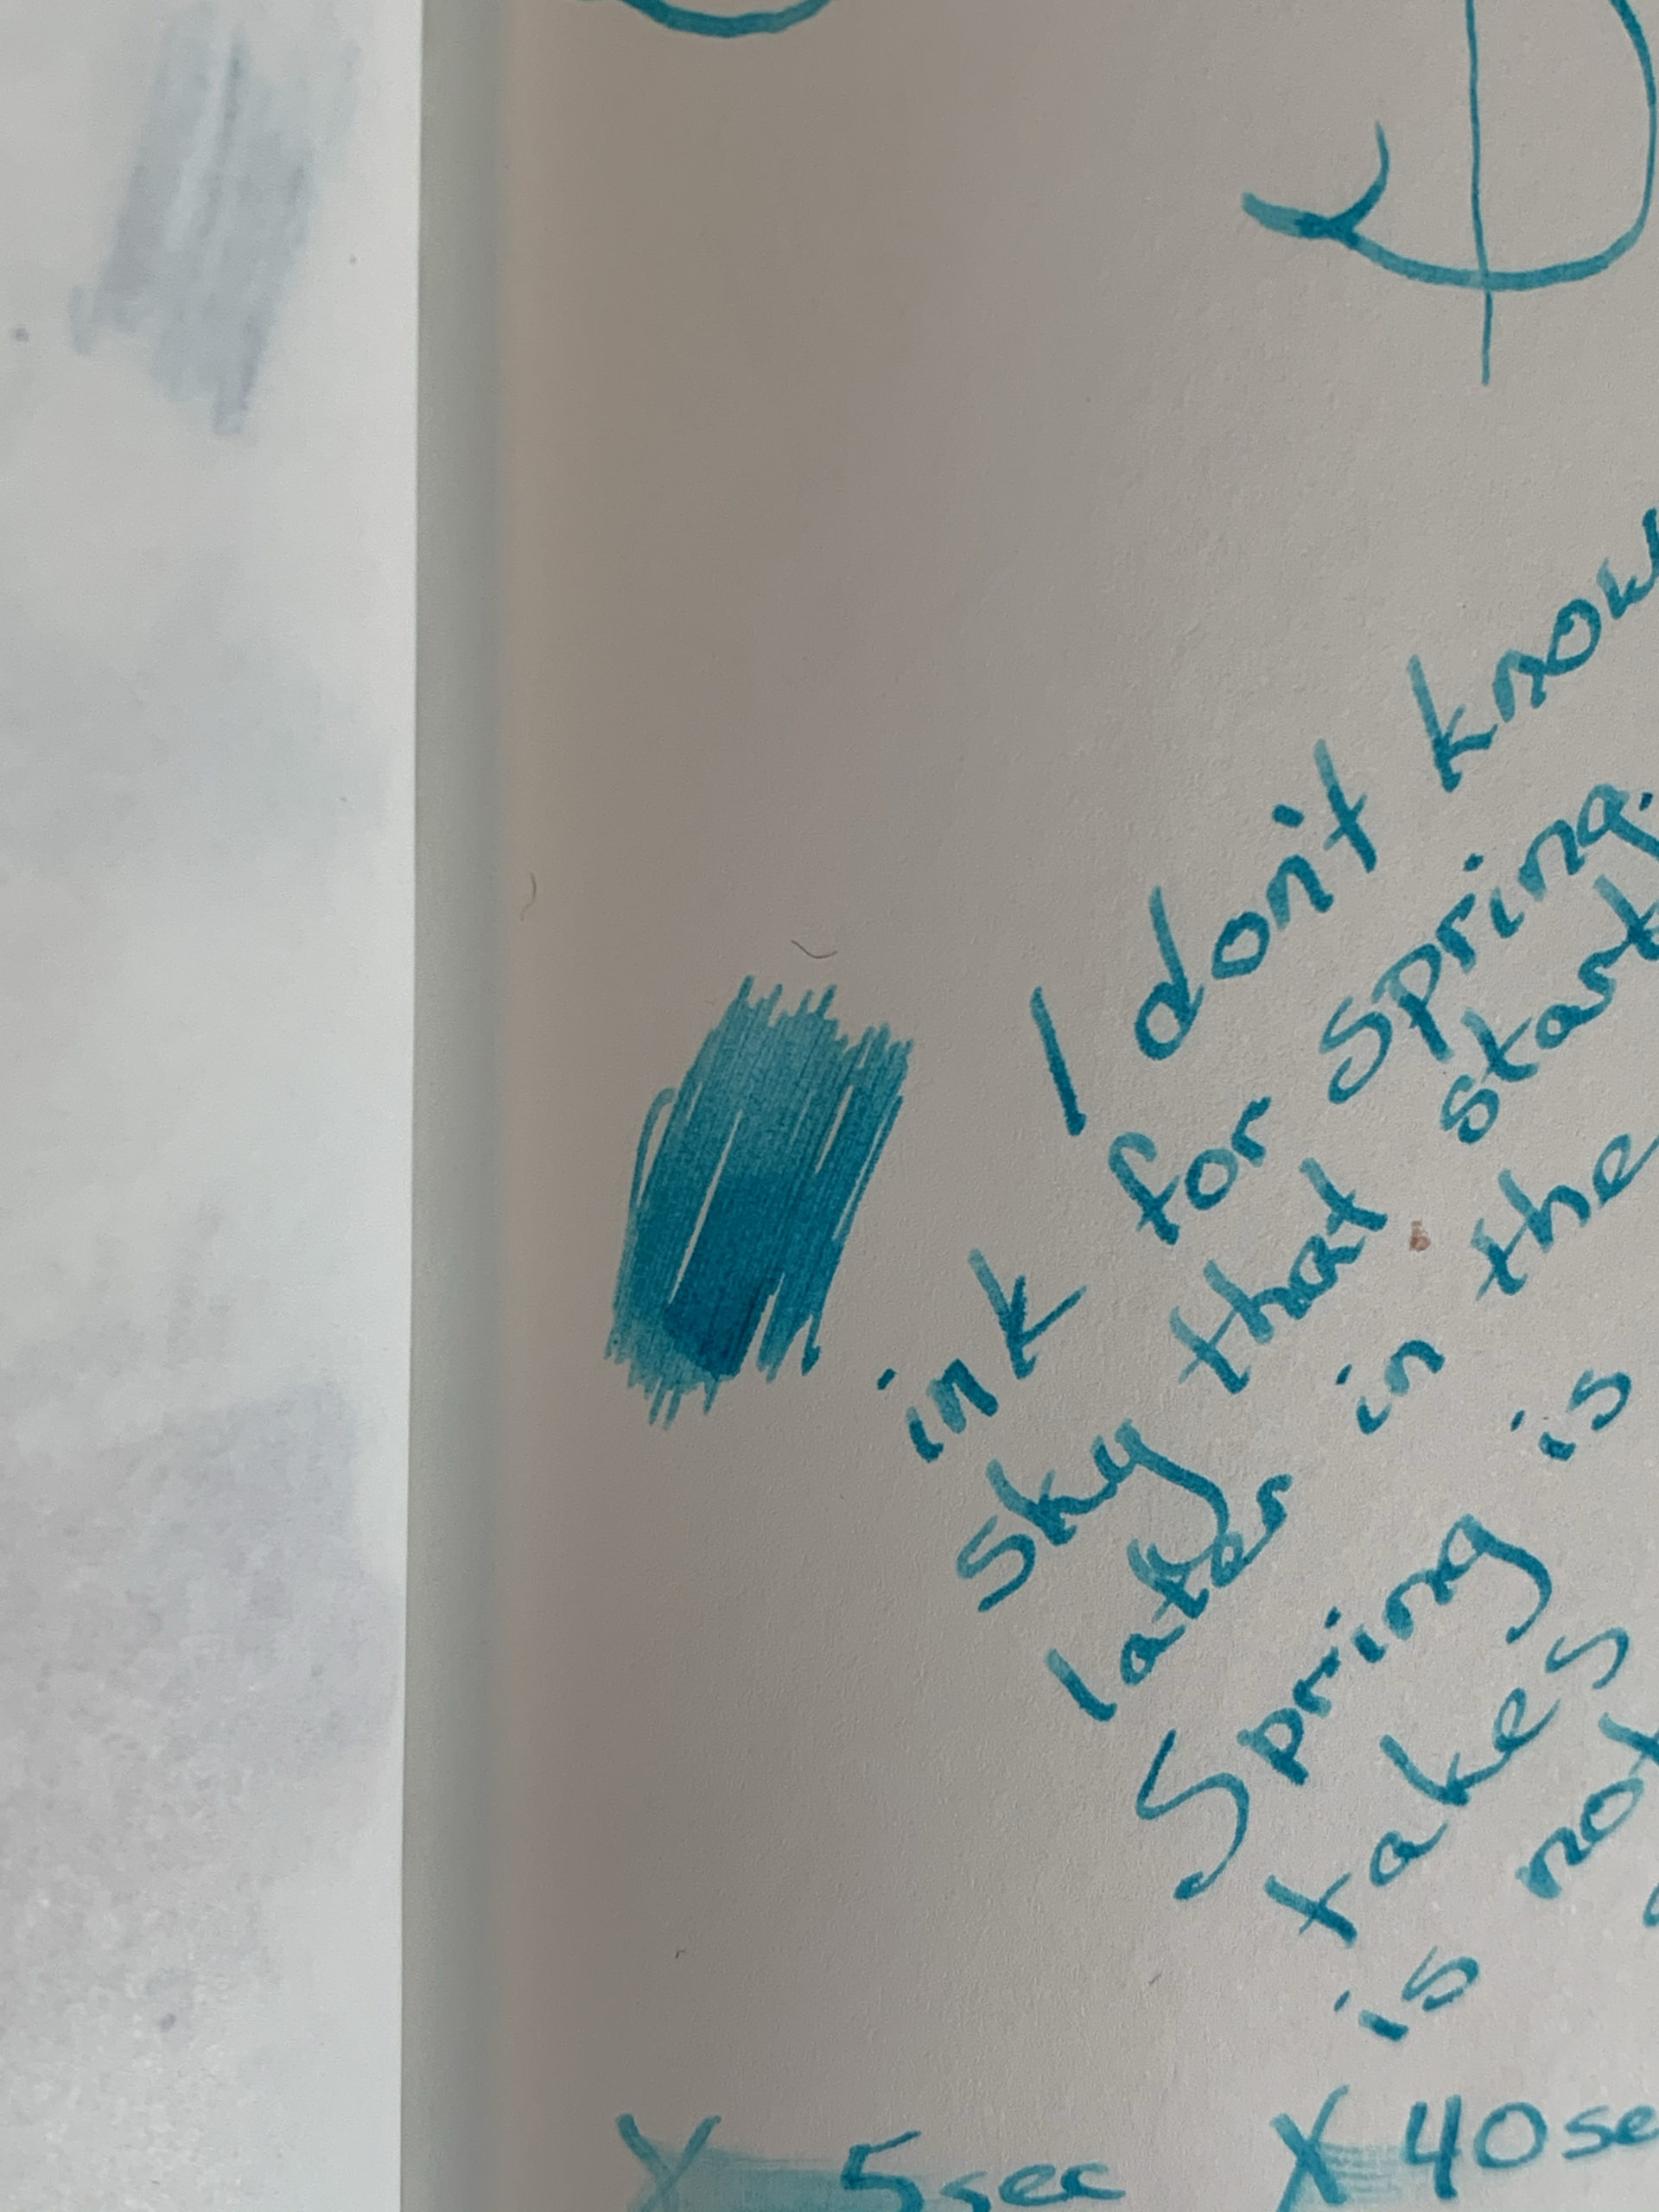 I don't know
ink for Spring.
sky that start
later in the
Spring is
takes
is not
X 5sec X 40se